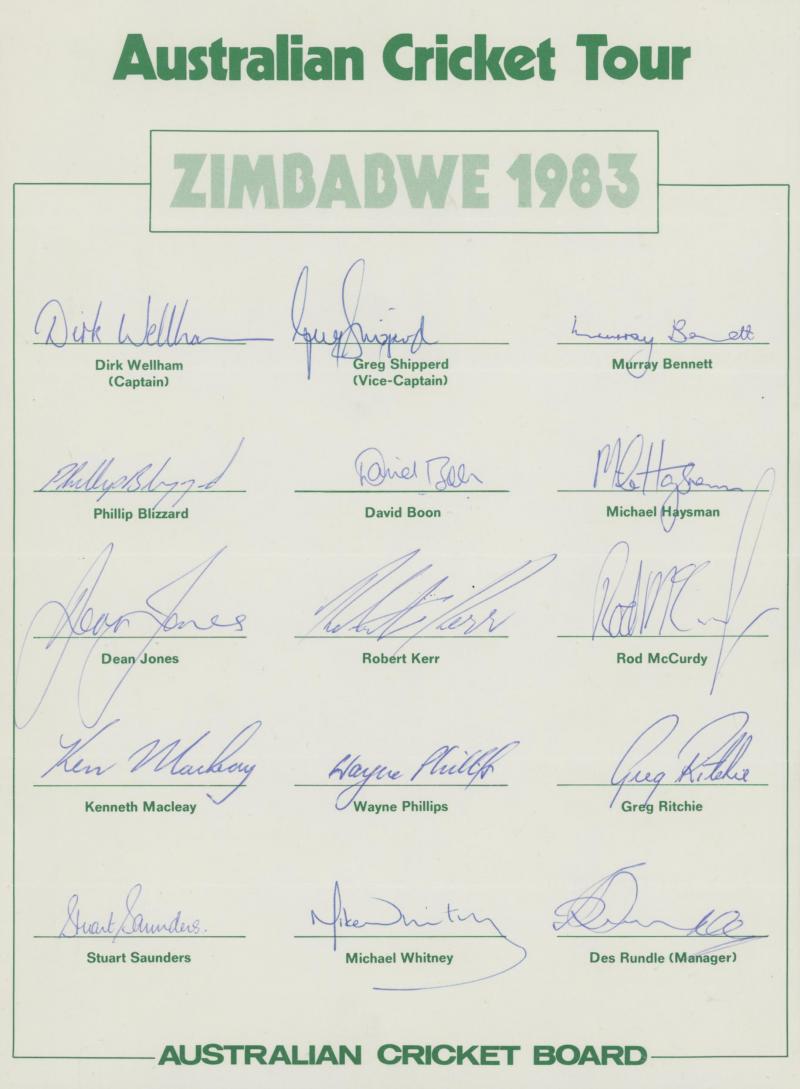 Australian Cricket Tour
ZIMBABWE 1983
Dirk Wellham
Greg Shipperd
Murray Bennett
Dirk Wellham
(Captain)
Greg Shipperd
(Vice-Captain)
Murray Bennett
Phillip Blizzard
David Boon
Mike Haysman
Phillip Blizzard
David Boon
Michael Haysman
Dean Jones
Robert Kerr
Rod McCurdy
Dean Jones
Robert Kerr
Rod McCurdy
Ken Macleay
Wayne Phillips
Greg Ritchie
Kenneth Macleay
Wayne Phillips
Greg Ritchie
Stuart Saunders.
Mike Whitney
Stuart Saunders
Michael Whitney
Des Rundle (Manager)
AUSTRALIAN CRICKET BOARD